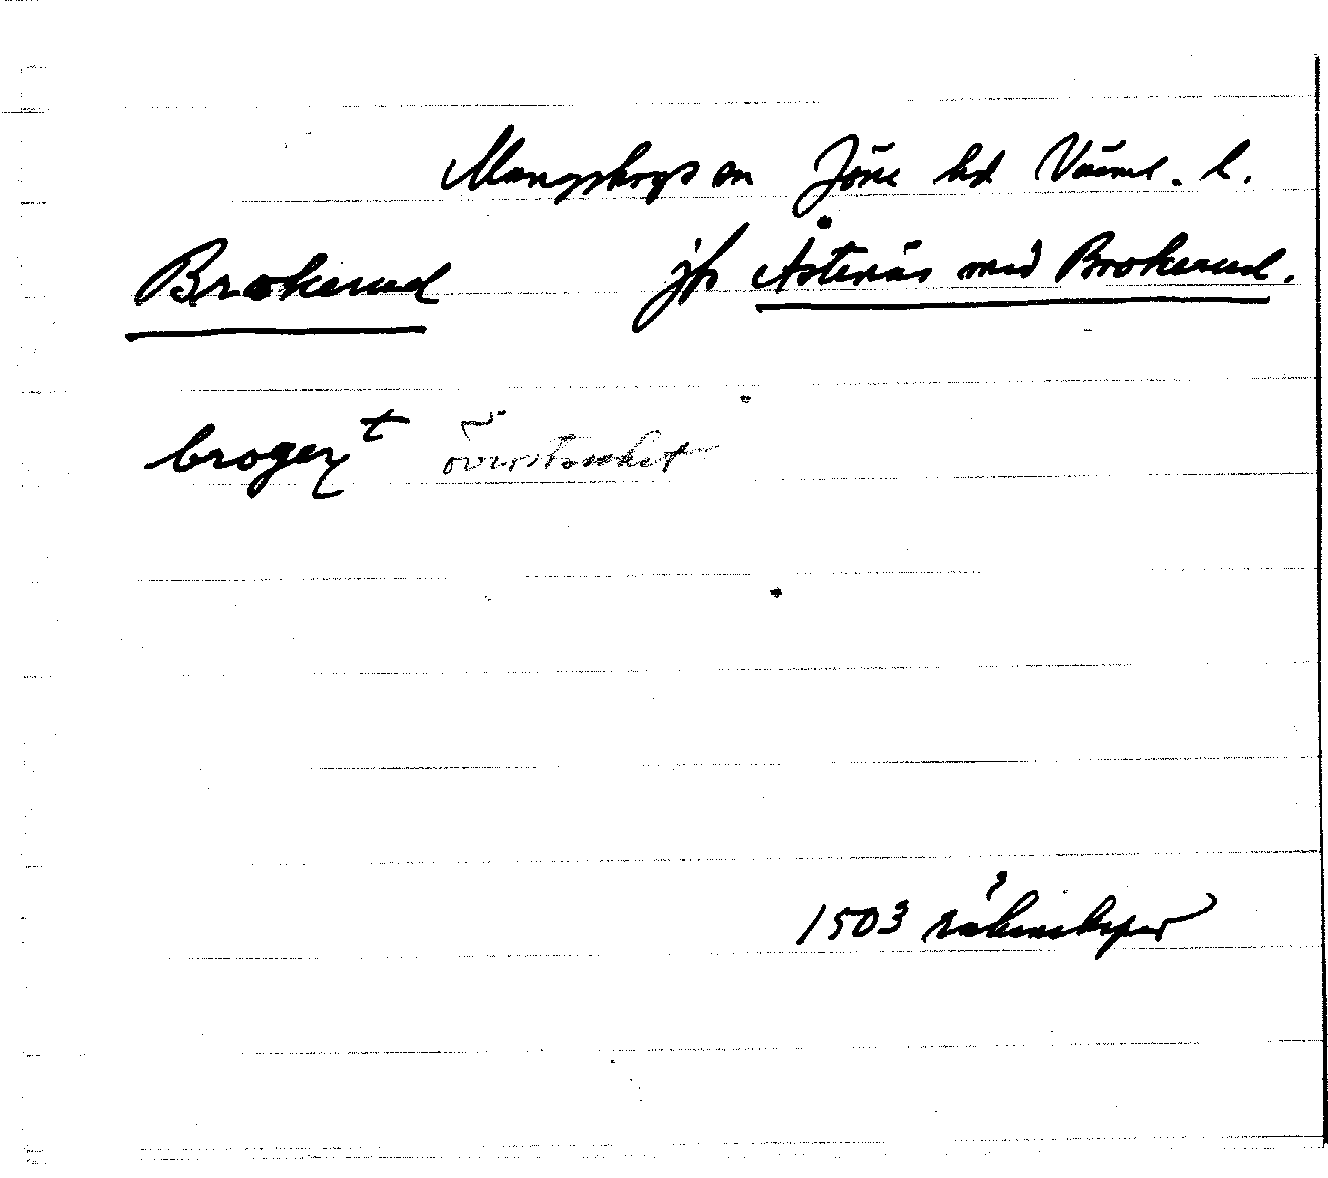 Mangskogs sn Jösse hd Värml. l.
Brokerud jfr Åstenäs med Brokerud.
brogert överstruket
1503 räkenskaper